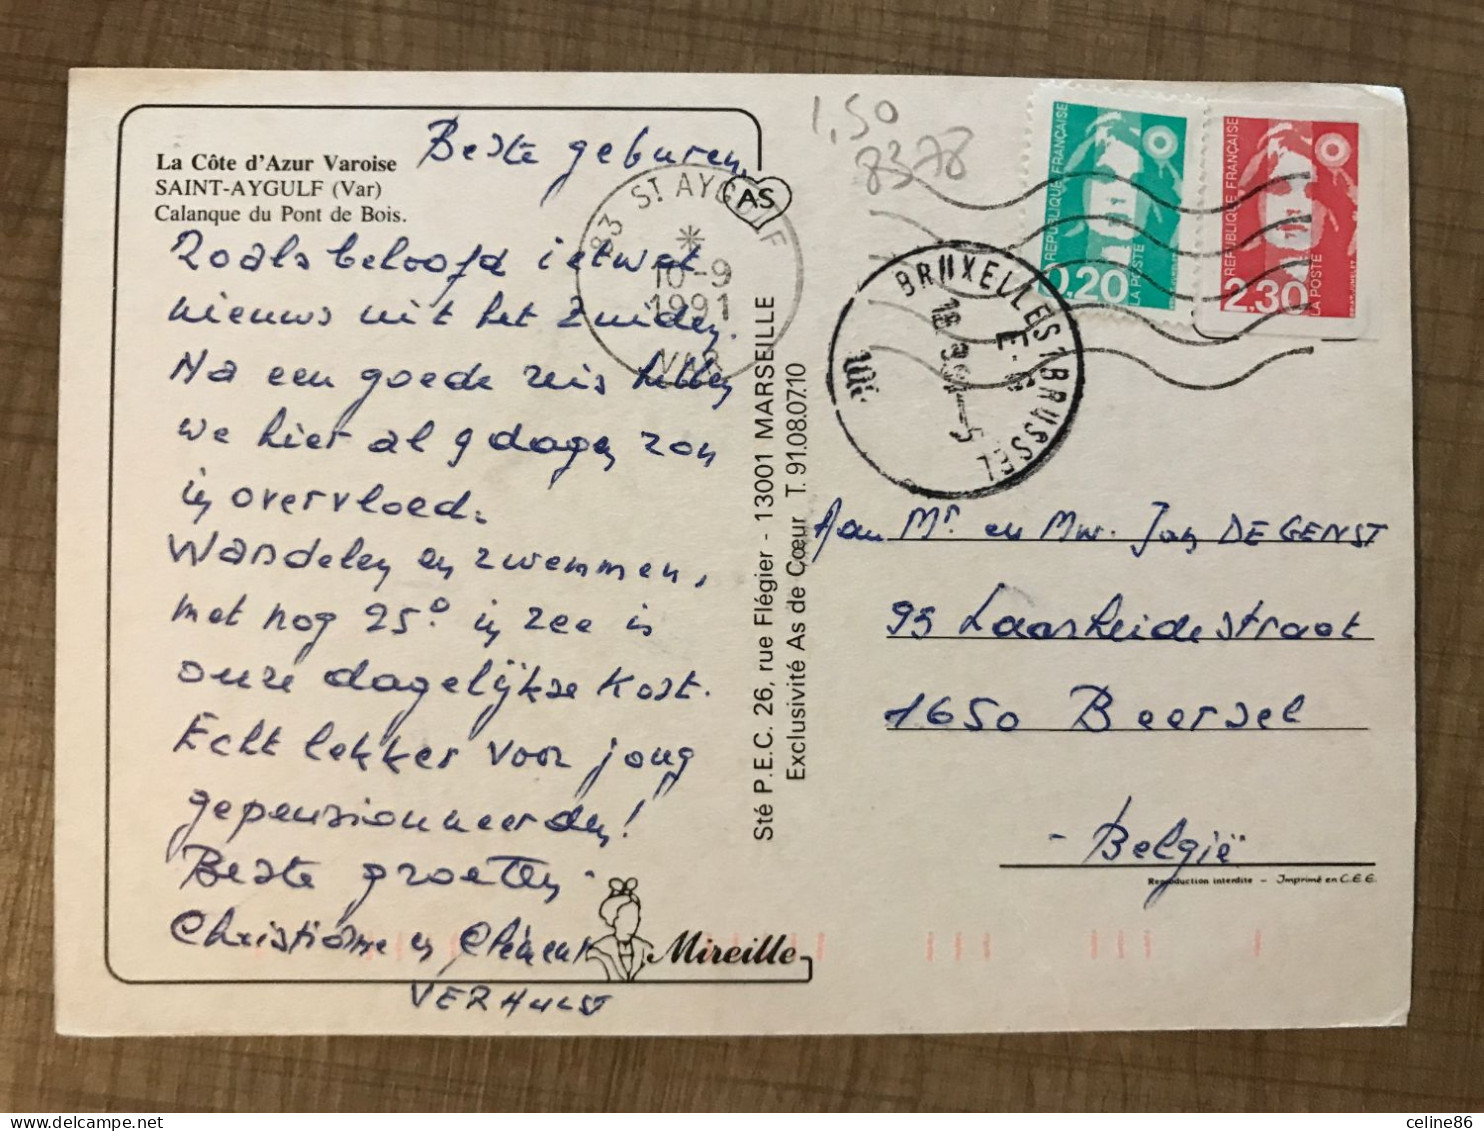 La Côte d'Azur Varoise
SAINT-AYGULF (Var)
Calanque du Pont de Bois.
Beste geburen,
Zoals beloofd ietwat
nieuws uit het Zuiden.
Na een goede reis hebben
we hier al 9 dagen zon
in overvloed.
Wandelen en zwemmen,
met nog 25° in zee is
onze dagelijkse kost.
Echt lekker voor jong
gepensionneerden!
Beste groeten
Christiane en Clément
VERHULST
Mireille
83 ST AYGULF
10-9
1991
VAR
AS
Sté P.E.C. 26, rue Flégier - 13001 MARSEILLE
Exclusivité As de Cœur T. 91.08.07.10
1,50
8378
RÉPUBLIQUE FRANÇAISE
0,20
LA POSTE
RÉPUBLIQUE FRANÇAISE
2,30
LA POSTE
BRUXELLES 1 BRUSSEL
Aan Mr en Mw. Jan DEGENST
93 Laarheidestraat
1650 Beersel
- België
Reproduction interdite - Imprimé en C.E.E.
celine86